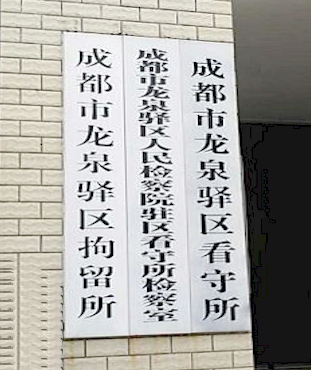 成都市龙泉驿区看守所
成都市龙泉驿区人民检察院驻区看守所检察室
成都市龙泉驿区拘留所